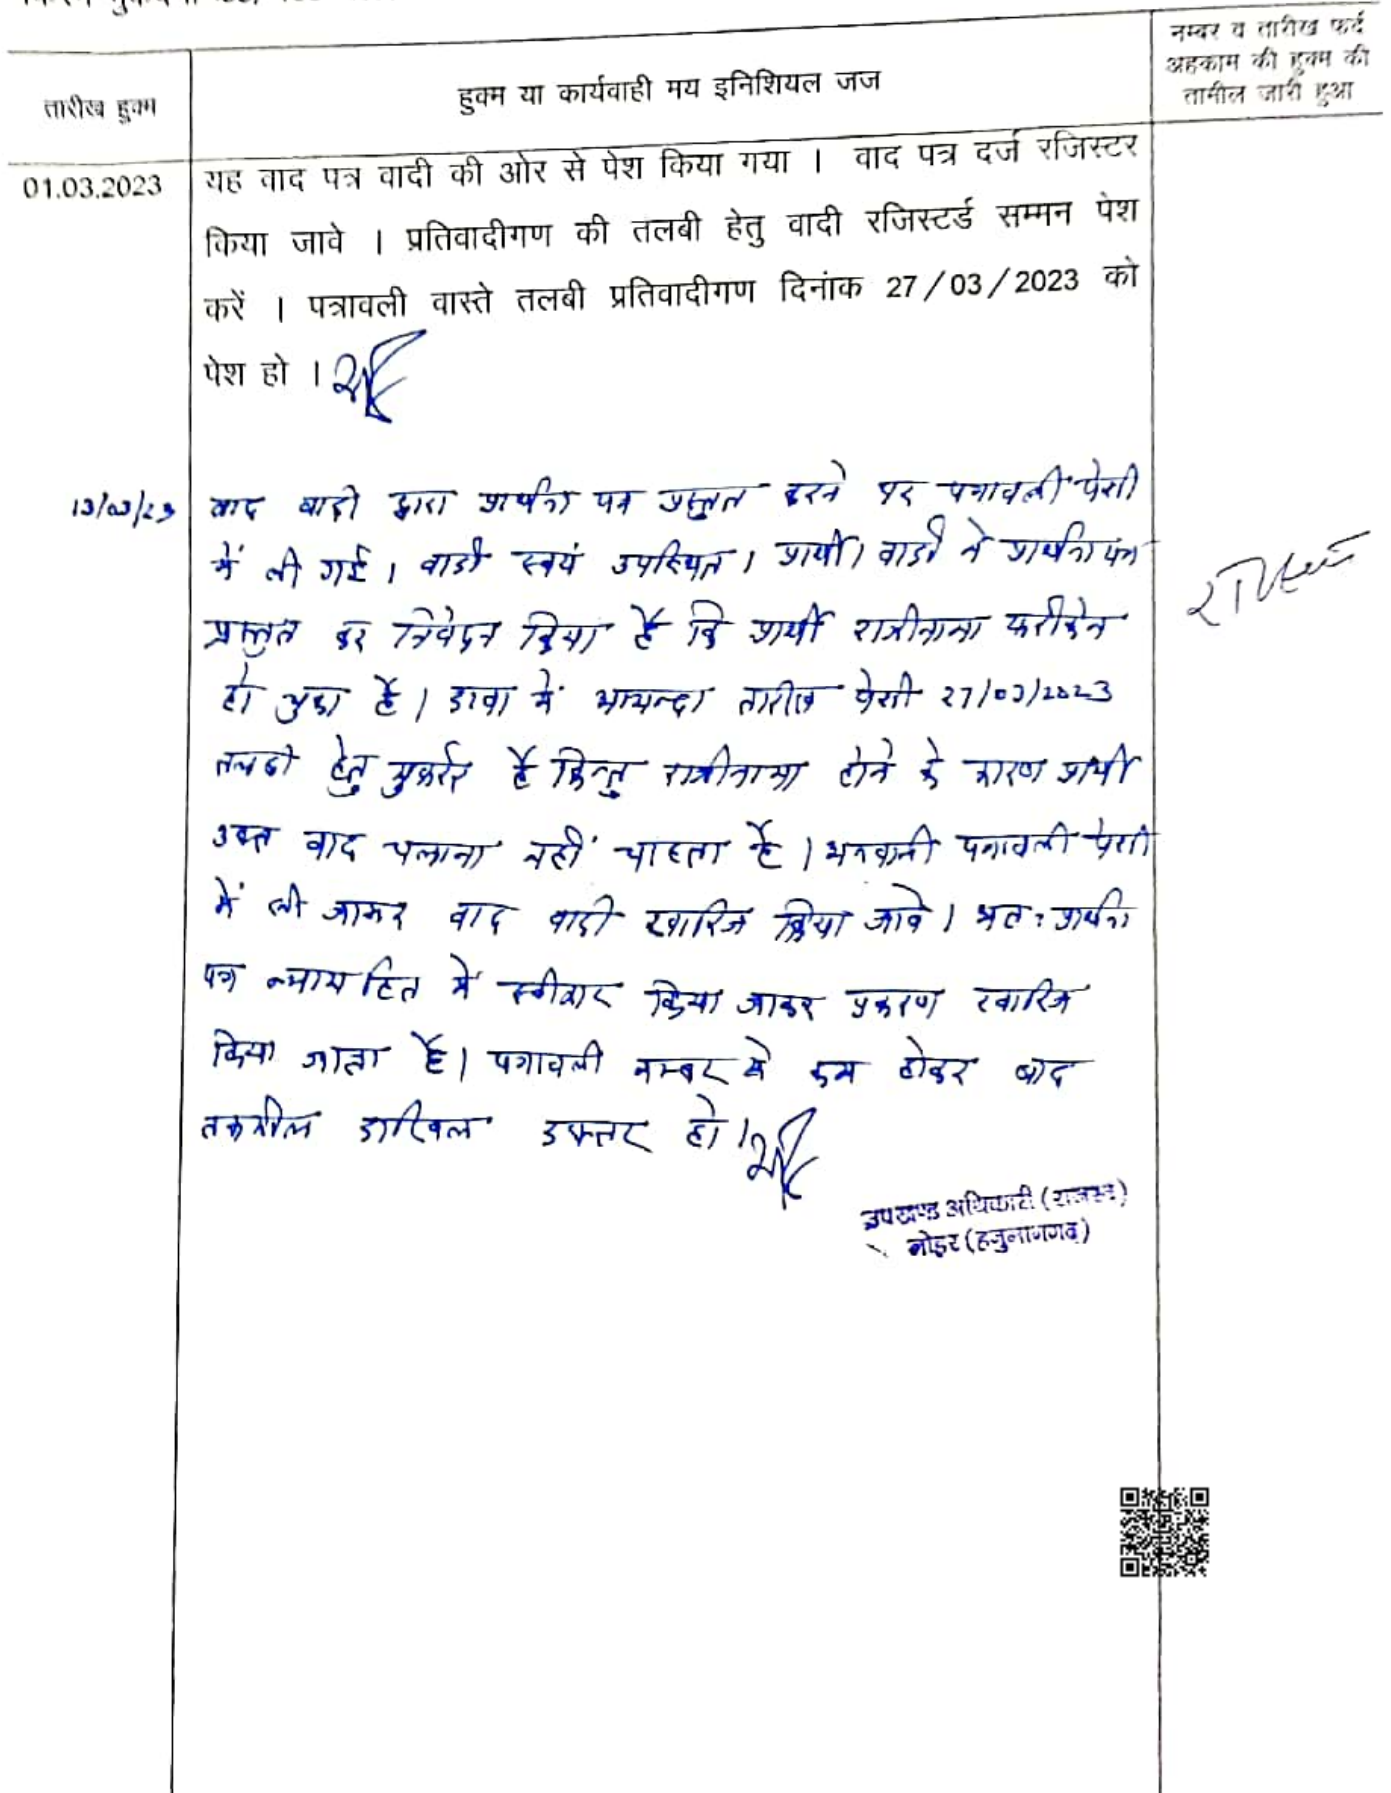 नम्बर व तारीख फर्द
अहकाम की हुक्म की
तामील जारी हुआ
तारीख हुक्म
हुक्म या कार्यवाही मय इनिशियल जज
01.03.2023
यह वाद पत्र वादी की ओर से पेश किया गया । वाद पत्र दर्ज रजिस्टर
किया जावे । प्रतिवादीगण की तलबी हेतु वादी रजिस्टर्ड सम्मन पेश
करें । पत्रावली वास्ते तलबी प्रतिवादीगण दिनांक 27/03/2023 को
पेश हो ।
13/03/23
वाद वादी द्वारा प्रार्थना पत्र प्रस्तुत करने पर पत्रावली पेशी
में ली गई। वादी स्वयं उपस्थित। प्रार्थी/वादी ने प्रार्थना पत्र
प्रस्तुत कर निवेदन किया है कि प्रार्थी राजीनामा फरीकेन
हो चुका है। दावा में आयन्दा तारीख पेशी 27/03/2023
तलबी हेतु मुकर्रर है किन्तु राजीनामा होने के कारण प्रार्थी
उक्त वाद चलाना नहीं चाहता है। पत्रावली पेशी
में ली जाकर वाद वादी खारिज किया जावे। अतः प्रार्थना
पत्र न्यायहित में स्वीकार किया जाकर प्रकरण खारिज
किया जाता है। पत्रावली नम्बर से कम होकर बाद
तकमील दाखिल दफ्तर हो।
उपखण्ड अधिकारी (राजस्व)
नोहर (हनुमानगढ़)